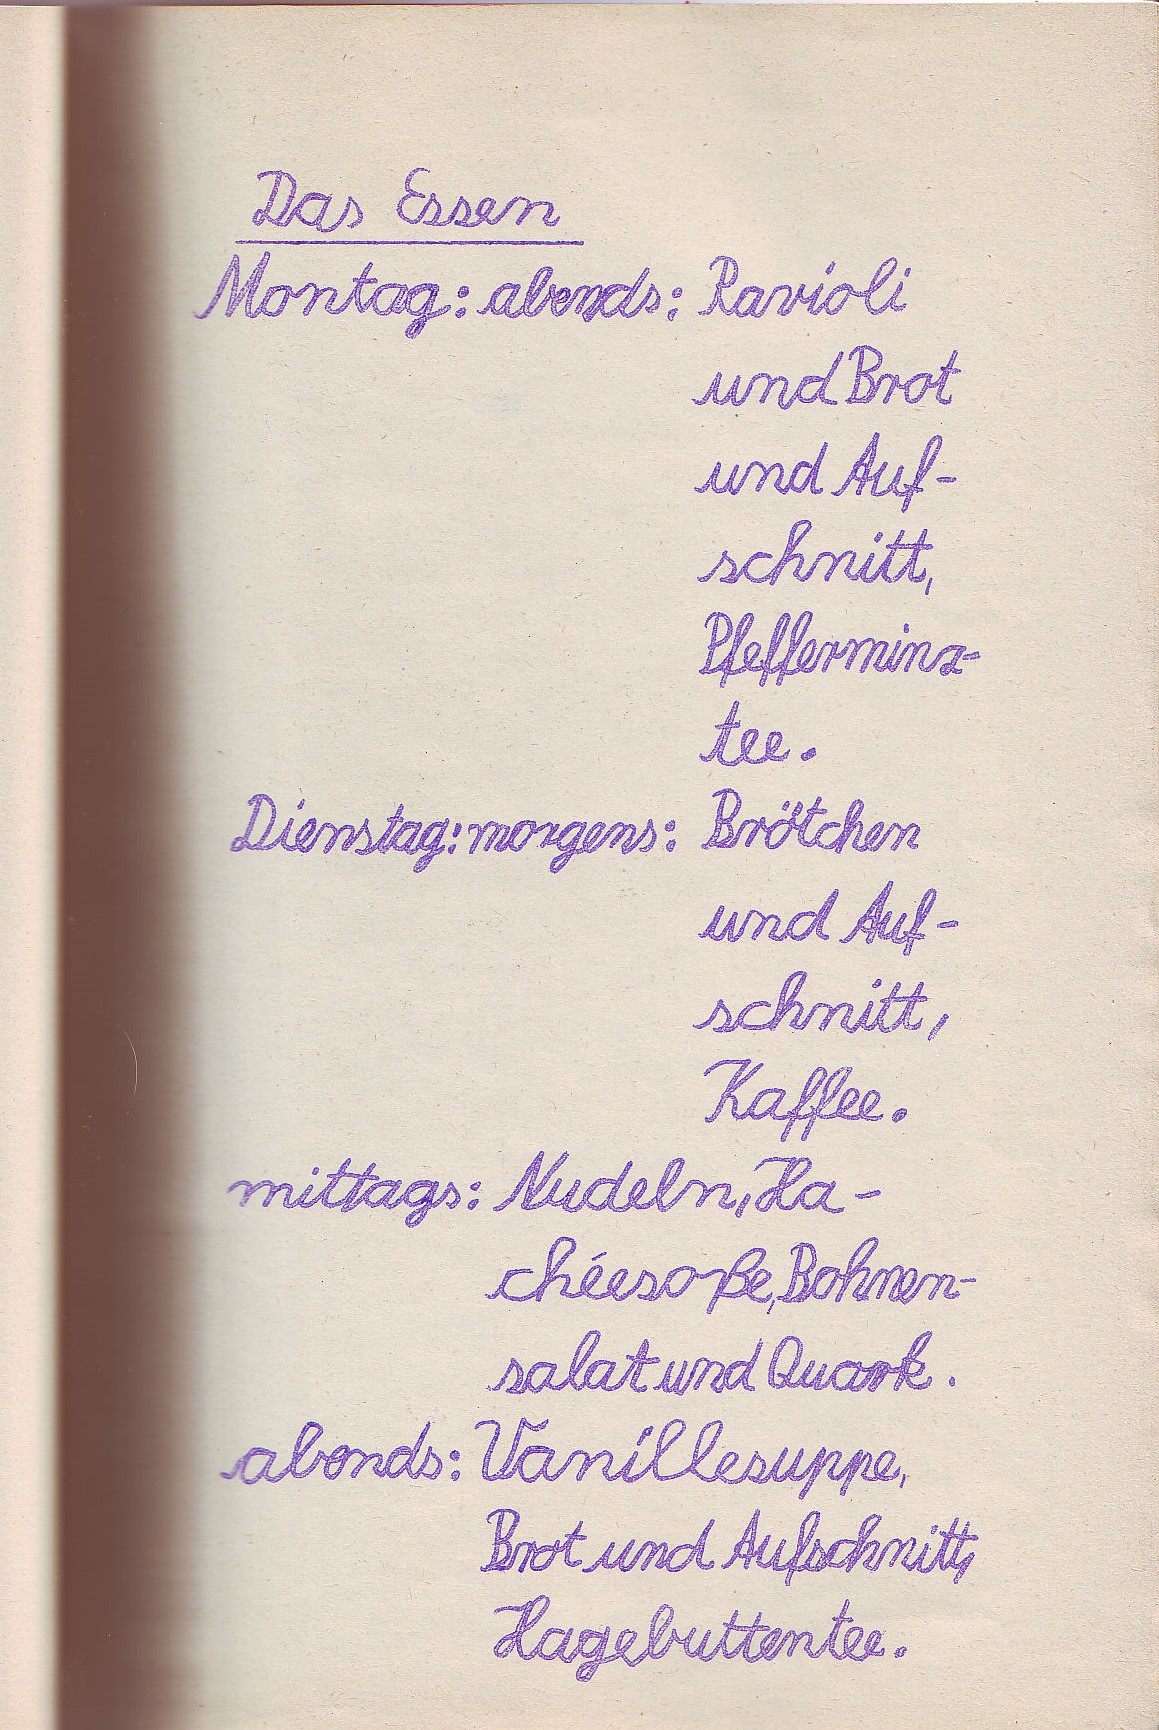 Das Essen
Montag: abends: Ravioli
und Brot
und Auf-
schnitt,
Pfefferminz-
tee.
Dienstag: morgens: Brötchen
und Auf-
schnitt,
Kaffee.
mittags: Nudeln, Ha-
chéesoße, Bohnen-
salat und Quark.
abends: Vanillesuppe,
Brot und Aufschnitt,
Hagebuttentee.